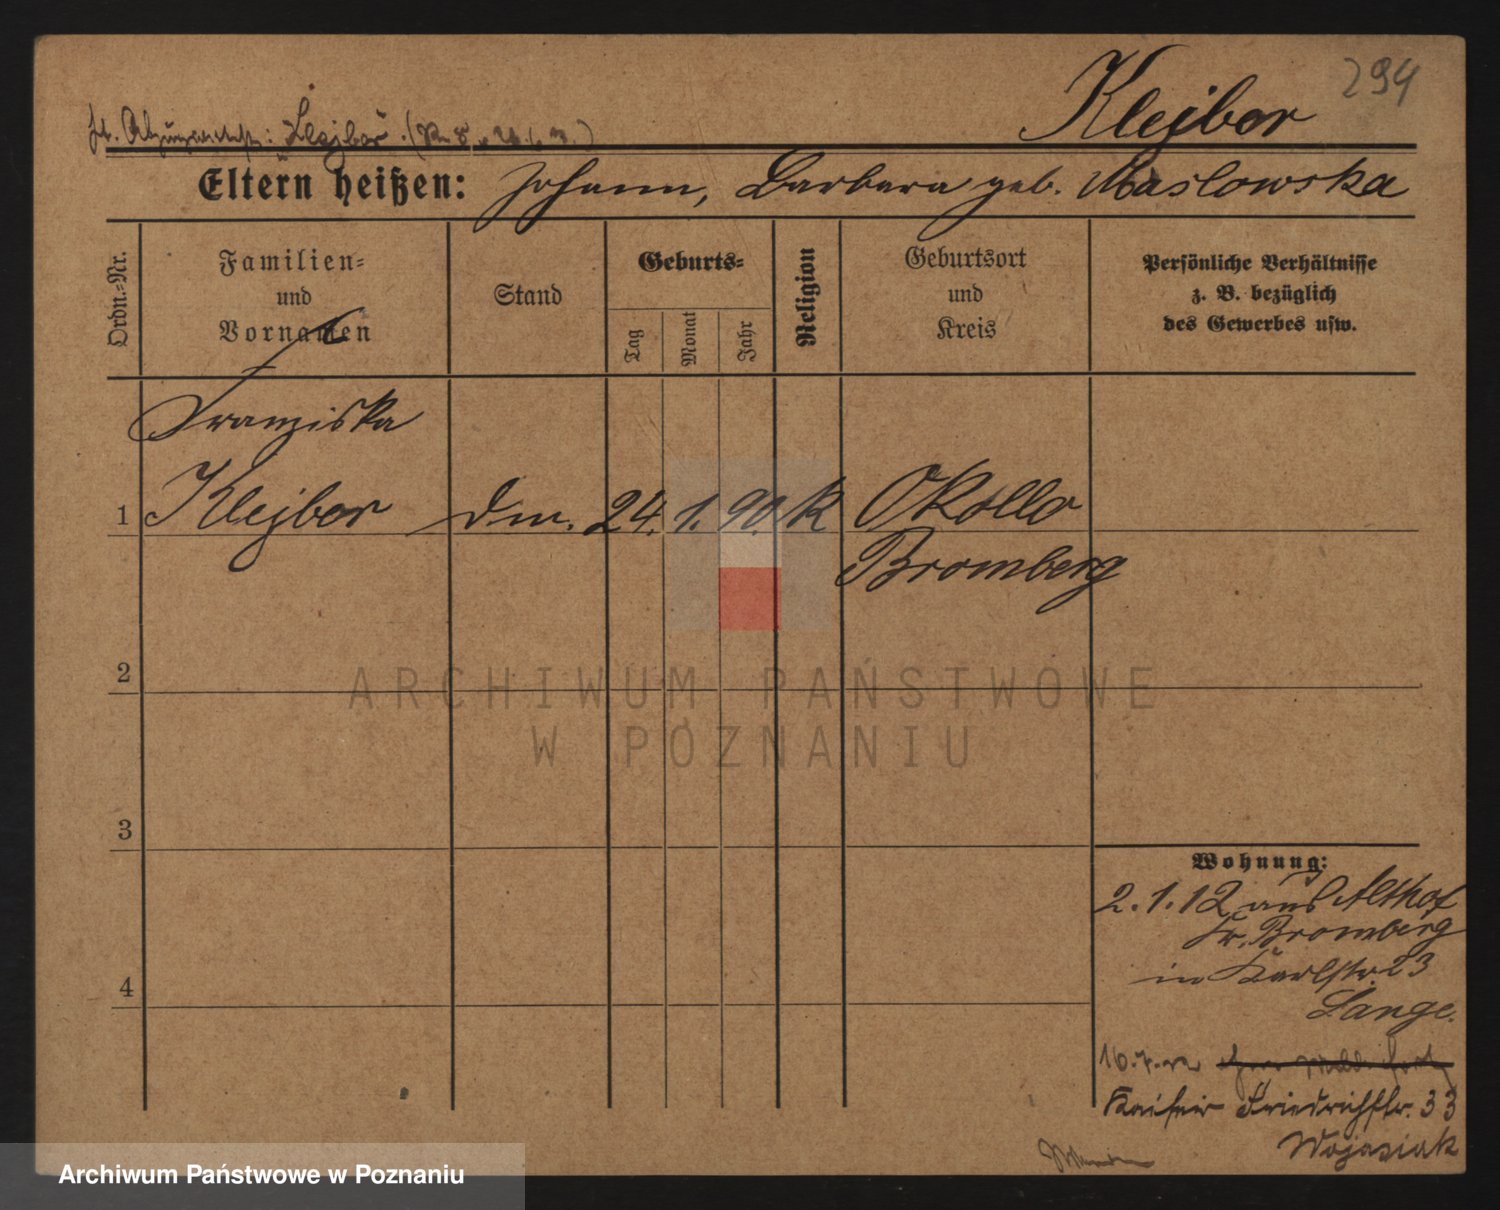 Klejbor
294
lt. Abzugsattest: "Klejbor".
Eltern heißen: Johann, Barbara geb. Maslowska
Ordn.-Nr.
Familien-
und
Vornamen
Stand
Geburts-
Tag
Monat
Jahr
Religion
Geburtsort
und
Kreis
Persönliche Verhältnisse
z. B. bezüglich
des Gewerbes usw.
Franziska
1 Klejbor Dm. 24. 1. 90. k Okollo
Bromberg
2
3
4
Wohnung:
2.1.12 aus Althof
Kr. Bromberg
in Karlstr. 23
Lange.
16.7.12
Kaiser Friedrichstr. 33
Wojasiak
ARCHIWUM PAŃSTWOWE
W POZNANIU
Archiwum Państwowe w Poznaniu